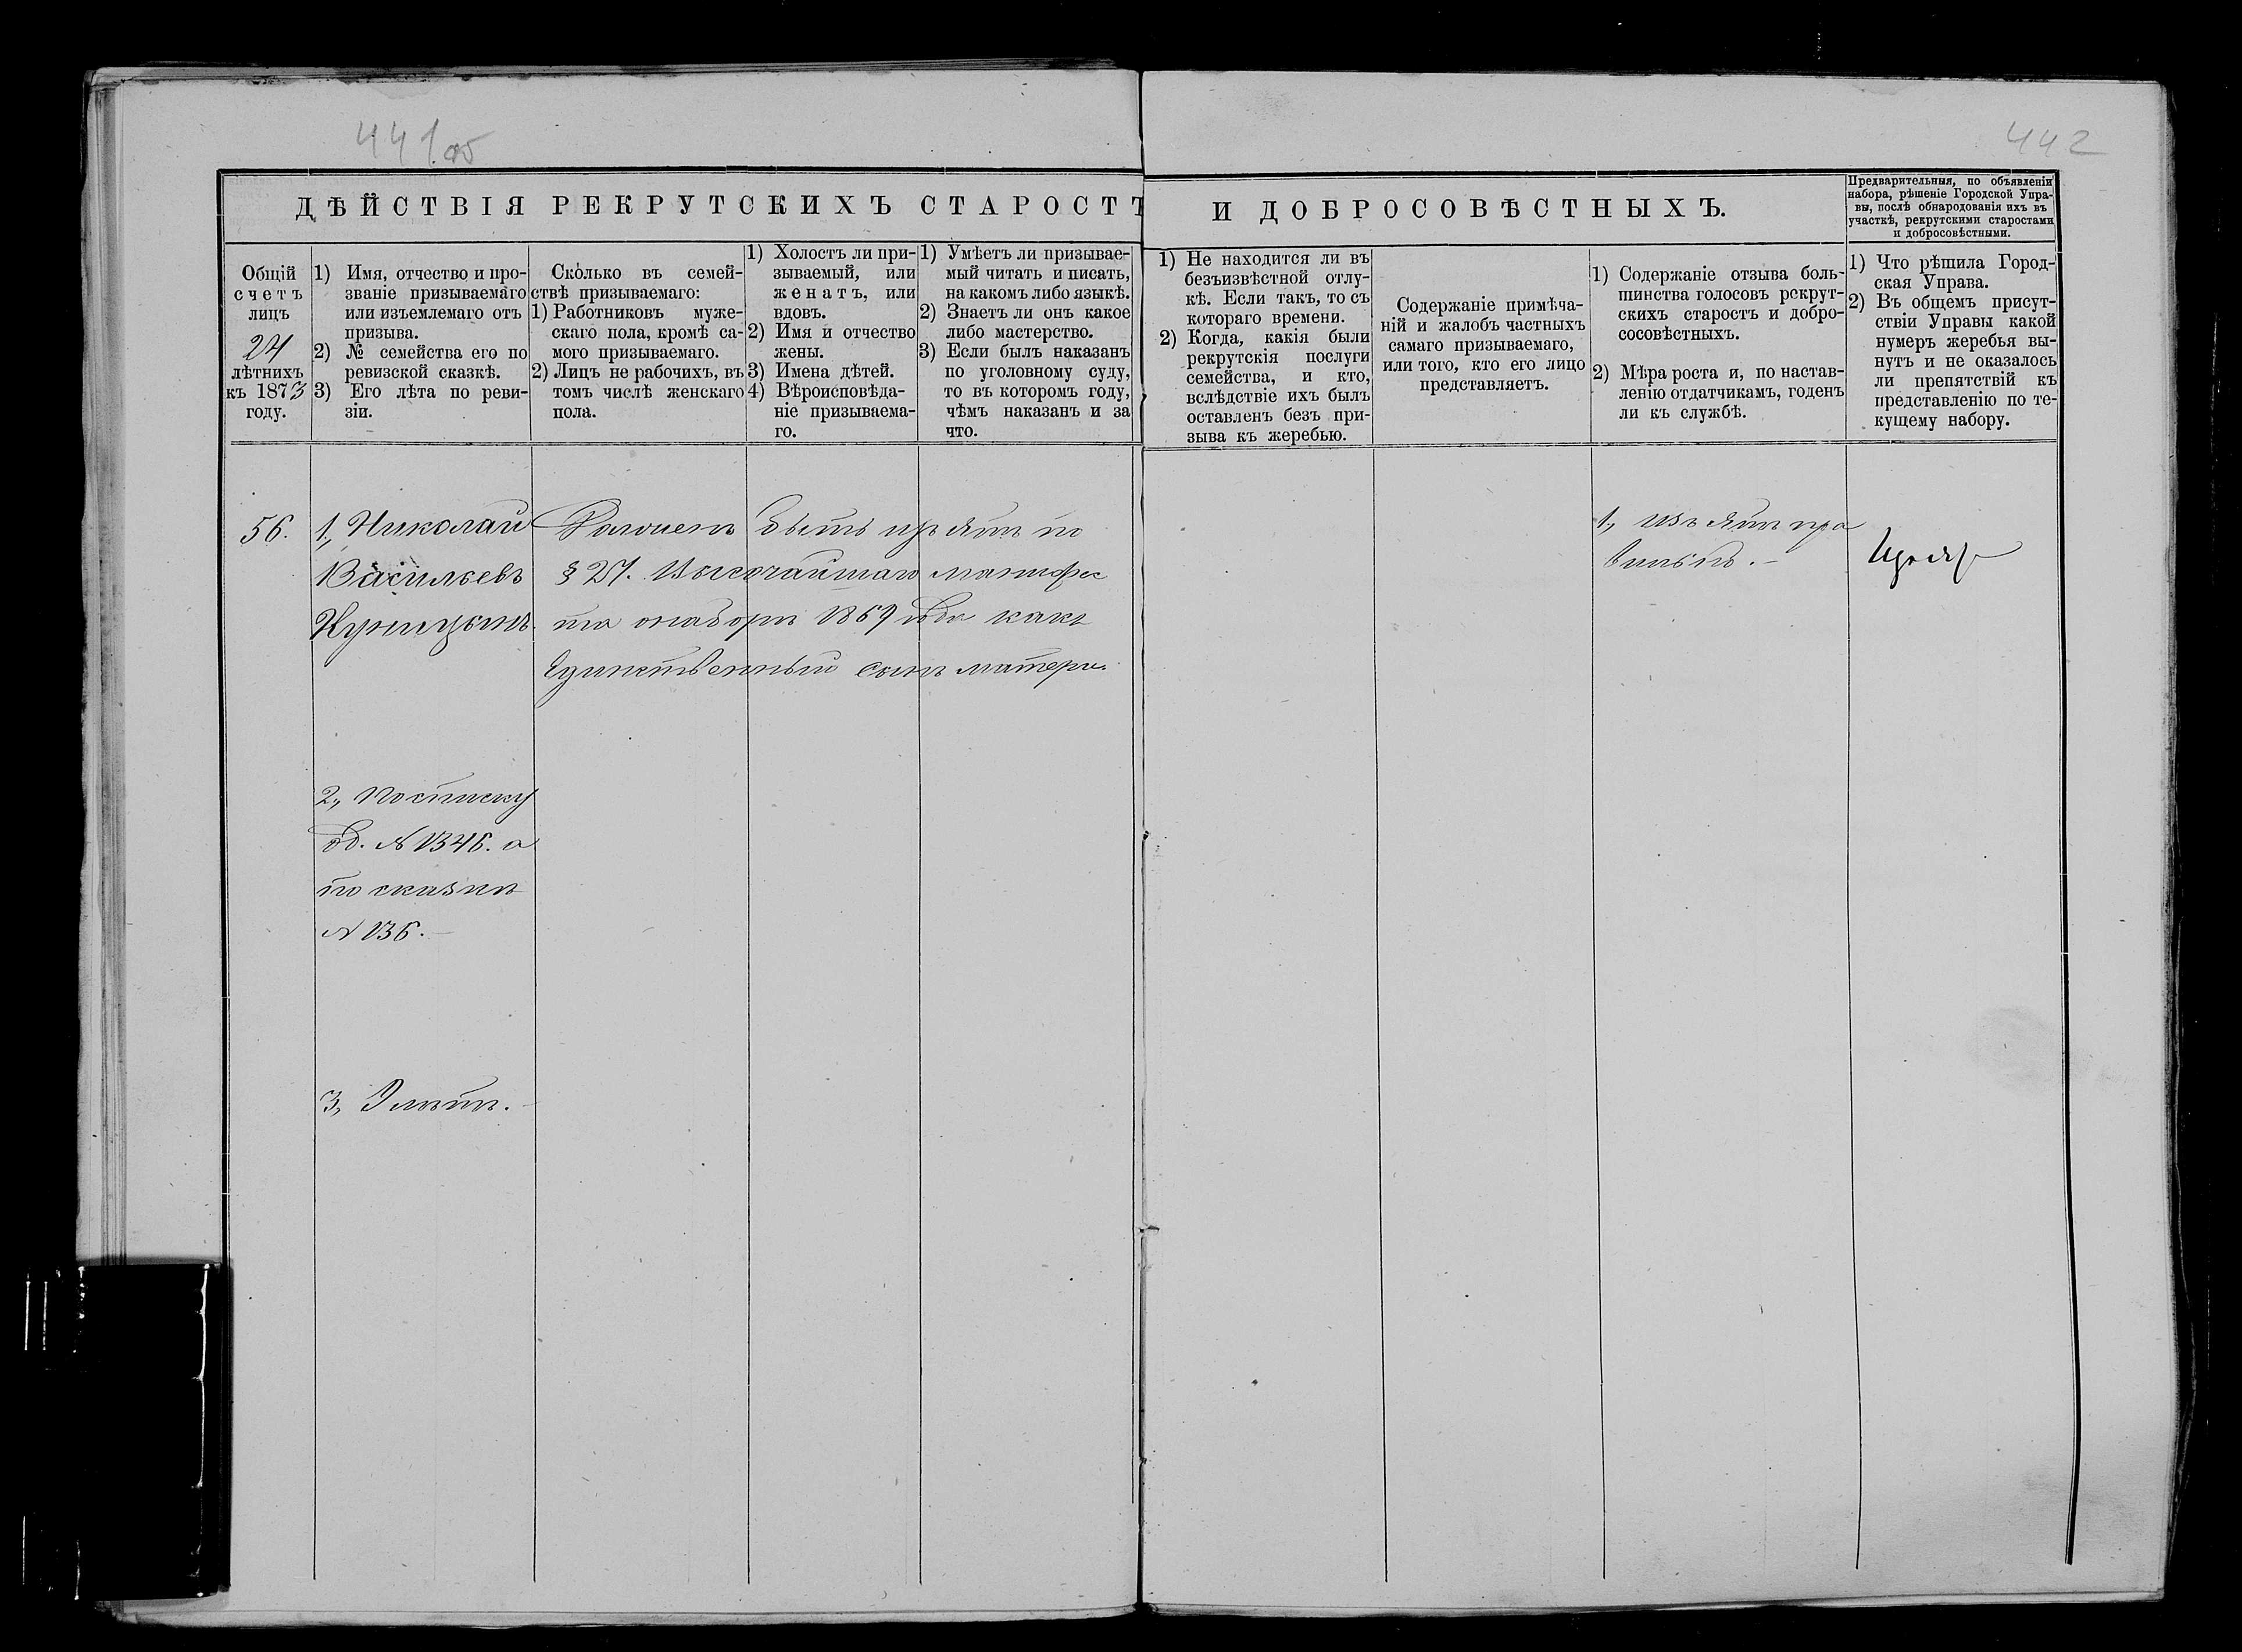 441об
442
ДѢЙСТВІЯ РЕКРУТСКИХЪ СТАРОСТЪ
И ДОБРОСОВѢСТНЫХЪ.
Предварительныя, по объявленіи
набора, рѣшеніе Городской Упра-
вы, послѣ обнародованія ихъ въ
участкѣ, рекрутскими старостами
и добросовѣстными.
Общій
счетъ
лицъ
24
лѣтнихъ
къ 1873
году.
1) Имя, отчество и про-
званіе призываемаго
или изъемлемаго отъ
призыва.
2) № семейства его по
ревизской сказкѣ.
3) Его лѣта по реви-
зіи.
Сколько въ семей-
ствѣ призываемаго:
1) Работниковъ муже-
скаго пола, кромѣ са-
мого призываемаго.
2) Лицъ не рабочихъ, въ
томъ числѣ женскаго
пола.
1) Холостъ ли при-
зываемый, или
женатъ, или
вдовъ.
2) Имя и отчество
жены.
3) Имена дѣтей.
4) Вѣроисповѣда-
ніе призываема-
го.
1) Умѣетъ ли призывае-
мый читать и писать,
на какомъ либо языкѣ.
2) Знаетъ ли онъ какое
либо мастерство.
3) Если былъ наказанъ
по уголовному суду,
то въ которомъ году,
чѣмъ наказанъ и за
что.
1) Не находится ли въ
безъизвѣстной отлу-
кѣ. Если такъ, то съ
котораго времени.
2) Когда, какія были
рекрутскія послуги
семейства, и кто,
вслѣдствіе ихъ былъ
оставленъ безъ при-
зыва къ жеребью.
Содержаніе примѣча-
ній и жалобъ частныхъ
самаго призываемаго,
или того, кто его лицо
представляетъ.
1) Содержаніе отзыва боль-
шинства голосовъ рекрут-
скихъ старостъ и добро-
сосовѣстныхъ.
2) Мѣра роста и, по настав-
ленію отдатчикамъ, годенъ
ли къ службѣ.
1) Что рѣшила Город-
ская Управа.
2) Въ общемъ присут-
ствіи Управы какой
нумеръ жеребья вы-
нутъ и не оказалось
ли препятствій къ
представленію по те-
кущему набору.
56.
1., Николай
Васильевъ
Долженъ быть изъятъ по
§ 27. Высочайшаго манифес
та о наборѣ 1869 года какъ
Единственный сынъ матери.
1., Изъятъ пра
вильнъ.
2., По списку
об. № 1346. а
по сказкѣ
№ 136.
3, 9 лѣтъ.